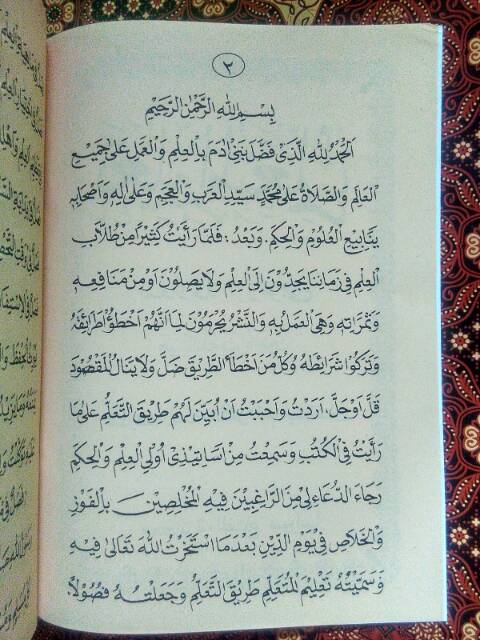 ٢
بِسْمِ اللهِ الرَّحْمٰنِ الرَّحِيْمِ
اَلْحَمْدُ لِلّٰهِ الَّذِيْ فَضَّلَ بَنِيْ اٰدَمَ بِالْعِلْمِ وَالْعَمَلِ عَلَى جَمِيْعِ
الْعَالَمِ وَالصَّلَاةُ عَلَى مُحَمَّدٍ سَيِّدِ الْعَرَبِ وَالْعَجَمِ وَعَلَى اٰلِهِ وَاَصْحَابِهِ
يَنَابِيْعِ الْعُلُوْمِ وَالْحِكَمِ. وَبَعْدُ: فَلَمَّا رَاَيْتُ كَثِيْرًا مِنْ طُلَّابِ
الْعِلْمِ فِيْ زَمَانِنَا يَجِدُّوْنَ اِلَى الْعِلْمِ وَلَا يَصِلُوْنَ اَوْ مِنْ مَنَافِعِهِ
وَثَمَرَاتِهِ وَهِيَ الْعَمَلُ بِهِ وَالنَّشْرُ يُحْرَمُوْنَ لِمَا اَنَّهُمْ اَخْطَؤُا طَرَائِقَهُ
وَتَرَكُوْا شَرَائِطَهُ وَكُلُّ مَنْ اَخْطَاَ الطَّرِيْقَ ضَلَّ وَلَا يَنَالُ الْمَقْصُوْدَ
قَلَّ اَوْ جَلَّ، اَرَدْتُ وَاَحْبَبْتُ اَنْ اُبَيِّنَ لَهُمْ طَرِيْقَ التَّعَلُّمِ عَلَى مَا
رَاَيْتُ فِي الْكُتُبِ وَسَمِعْتُ مِنْ اَسَاتِيْذِيْ اُولِي الْعِلْمِ وَالْحِكَمِ
رَجَاءَ الدُّعَاءِ لِيْ مِنَ الرَّاغِبِيْنَ فِيْهِ الْمُخْلِصِيْنَ بِالْفَوْزِ
وَالْخَلَاصِ فِيْ يَوْمِ الدِّيْنِ بَعْدَ مَا اسْتَخَرْتُ اللهَ تَعَالَى فِيْهِ
وَسَمَّيْتُهُ تَعْلِيْمَ الْمُتَعَلِّمِ طَرِيْقَ التَّعَلُّمِ وَجَعَلْتُهُ فُصُوْلًا.